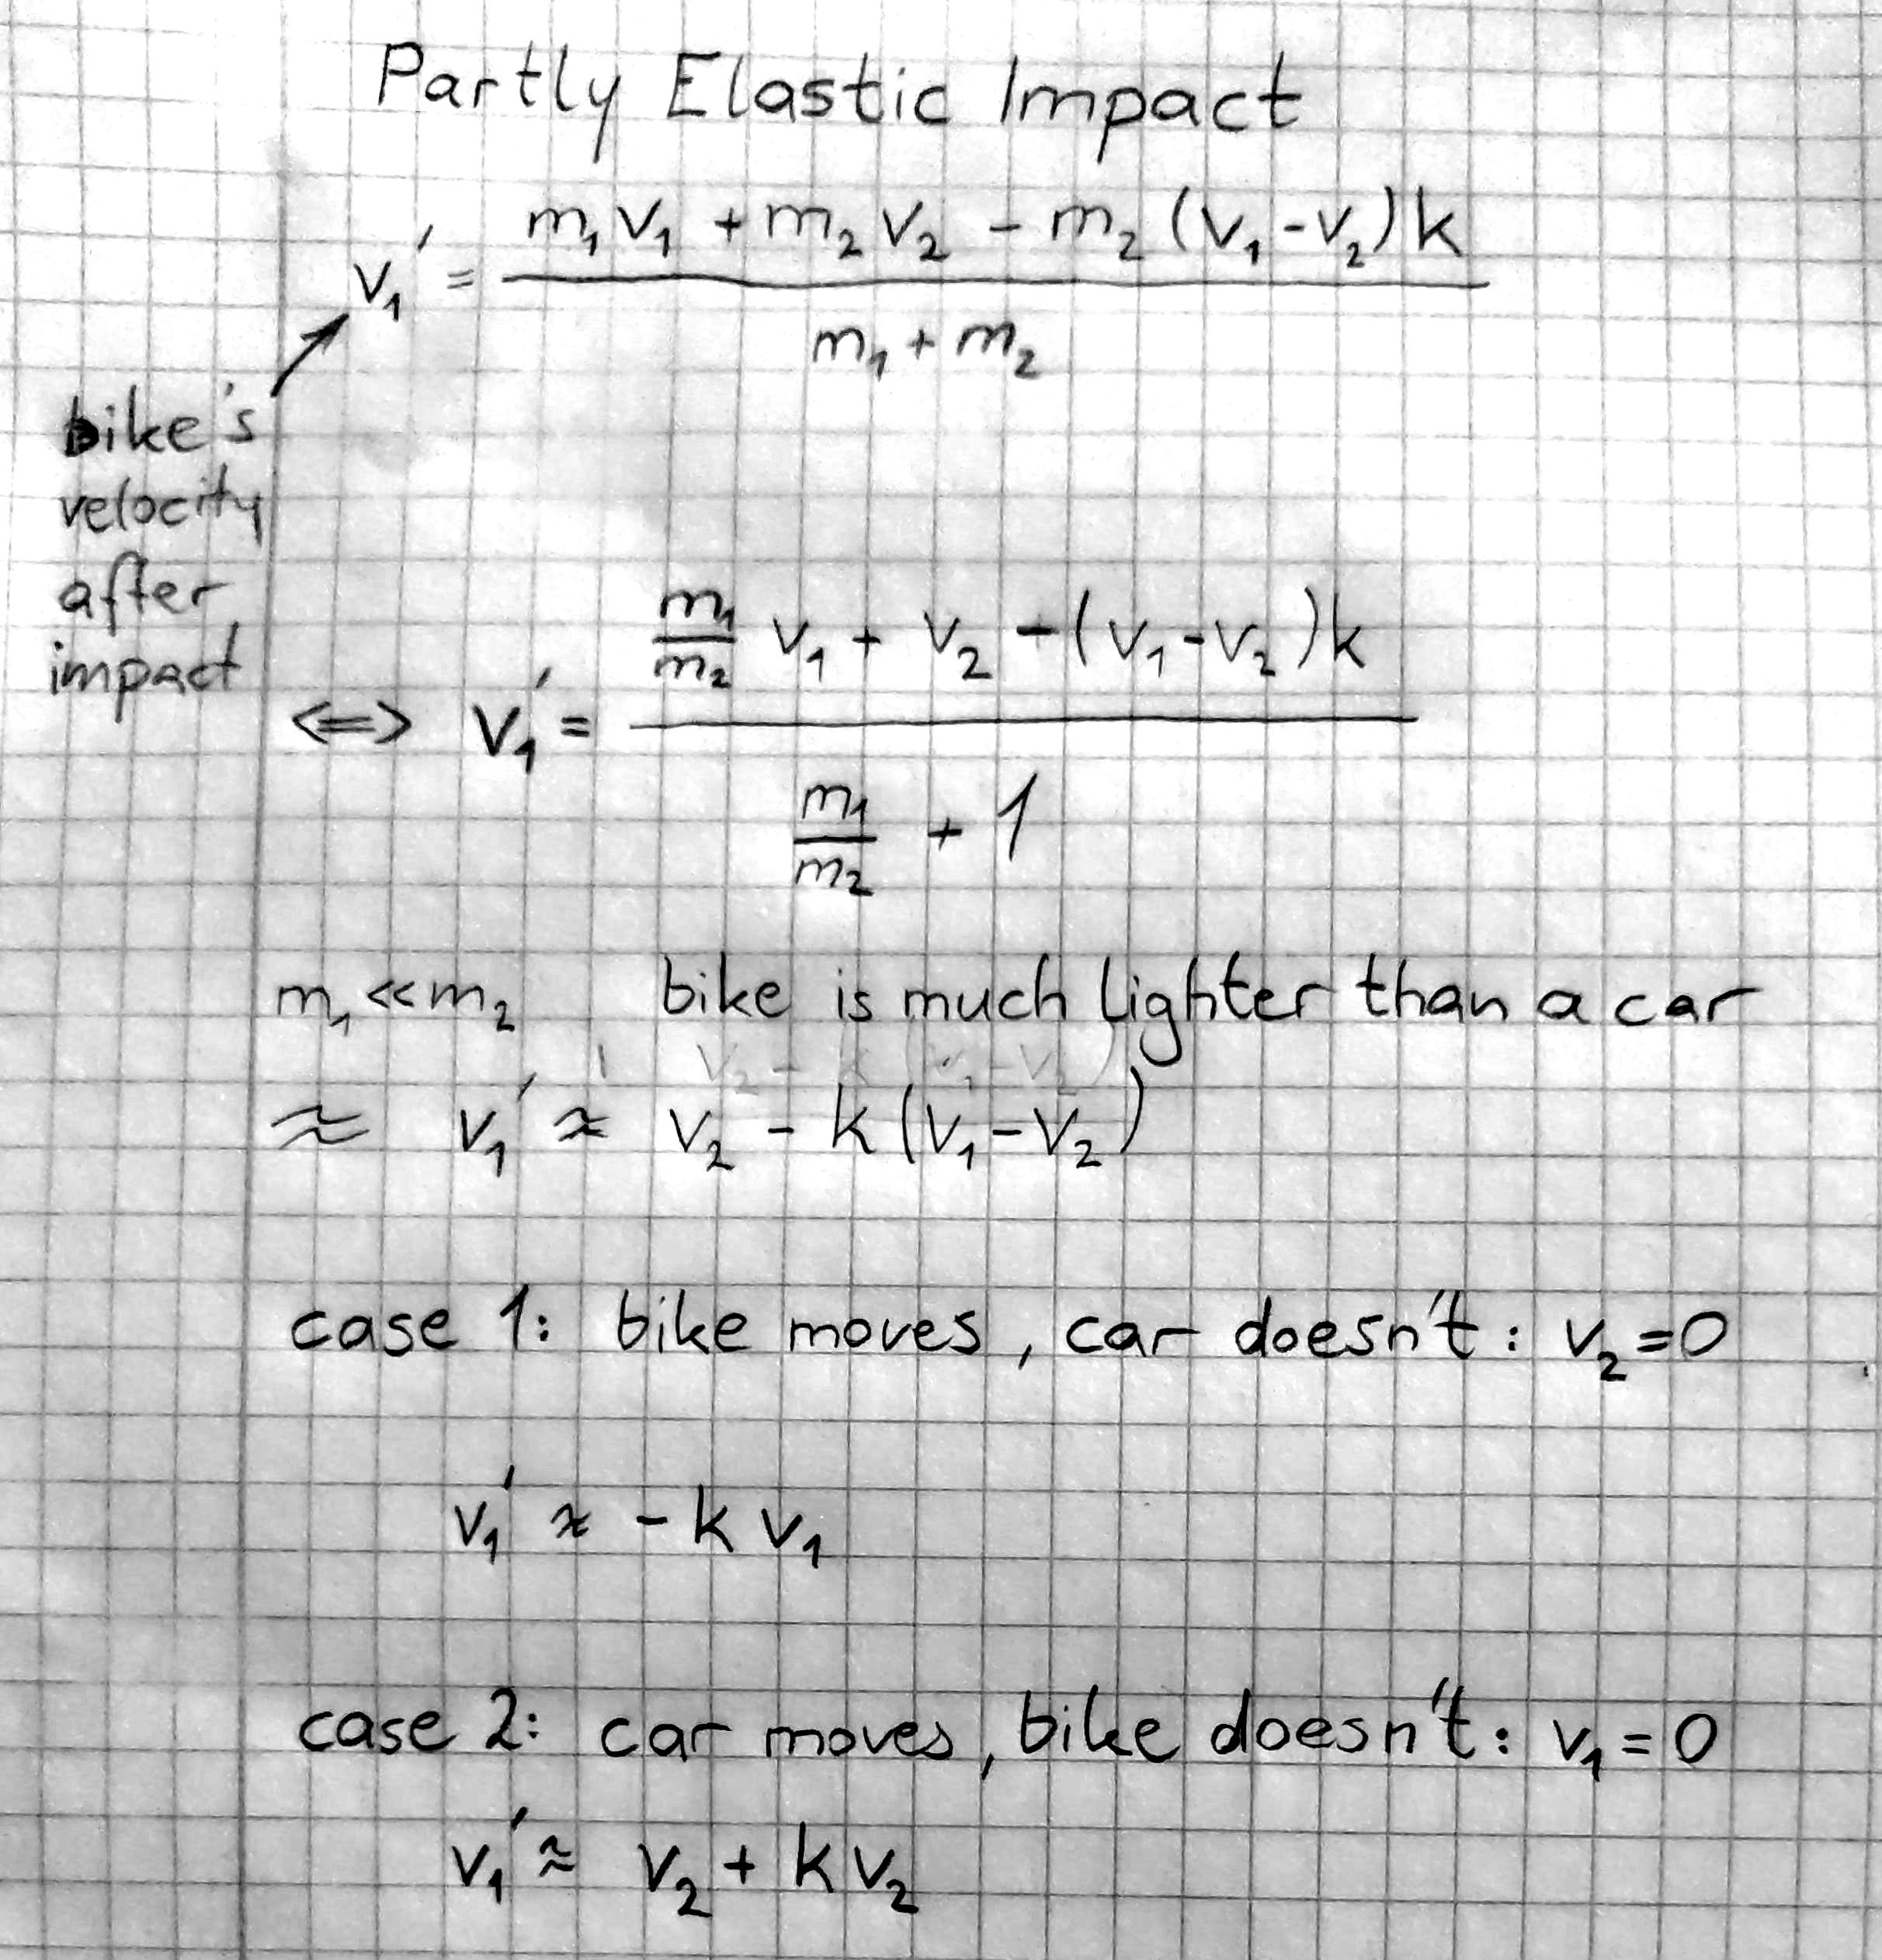 Partly Elastic Impact
v₁' = (m₁v₁ + m₂v₂ - m₂(v₁-v₂)k) / (m₁ + m₂)
bike's
velocity
after
impact
⇔ v₁' = (m₁/m₂ v₁ + v₂ - (v₁-v₂)k) / (m₁/m₂ + 1)
m₁ ≪ m₂ bike is much lighter than a car
≈ v₁' ≈ v₂ - k(v₁-v₂)
case 1: bike moves, car doesn't: v₂=0
v₁' ≈ -k v₁
case 2: car moves, bike doesn't: v₁=0
v₁' ≈ v₂ + k v₂